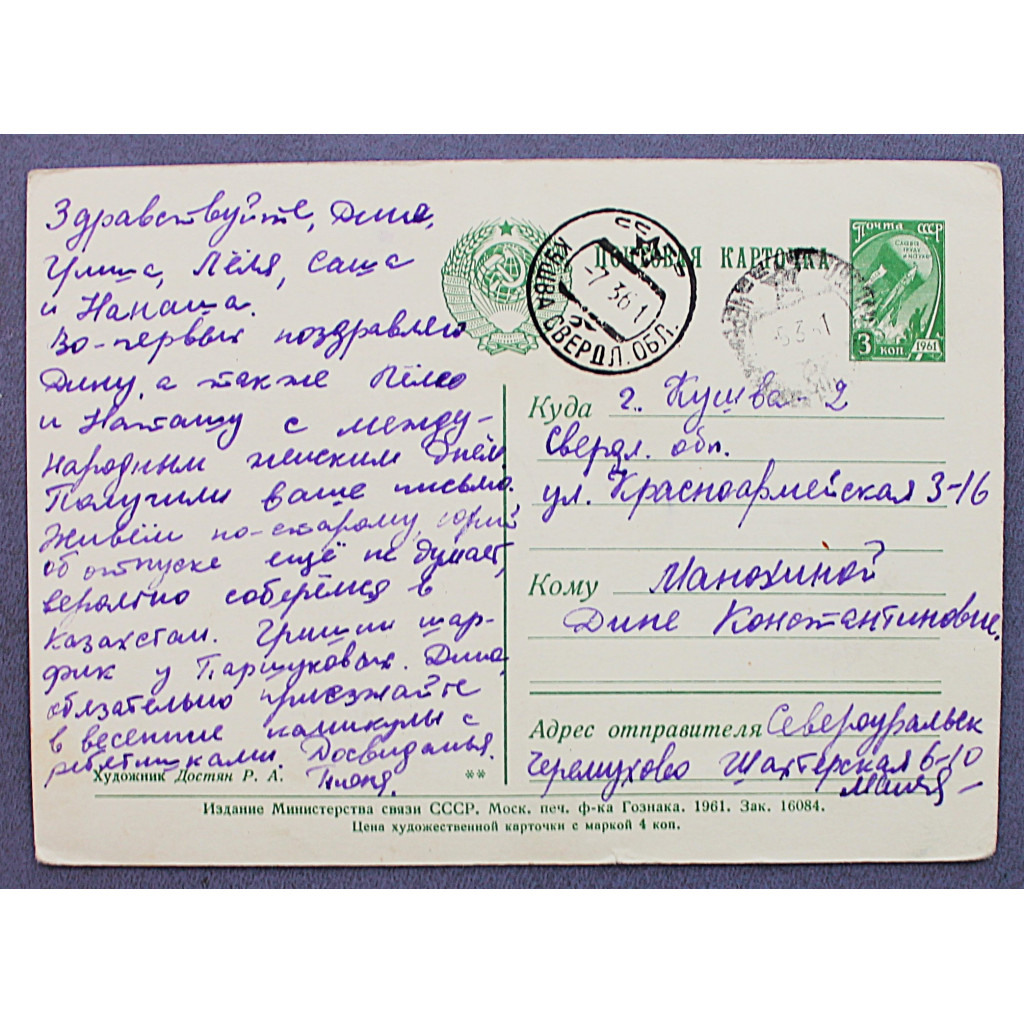 Здравствуйте, Дина,
Гриша, Лёля, Саша
и Наташа.
Во-первых поздравляю
Дину, а также Лёлю
и Наташу с между-
народным женским днём.
Получили ваше письмо.
Живём по-старому,
об отпуске ещё не думает,
вероятно соберёмся в
Казахстан. Гришин шар-
фик у Паршуковых. Дина,
обязательно приезжайте
в весенние каникулы с
ребятишками. Досвиданья.
Художник Достян Р. А.
**
ПОЧТОВАЯ КАРТОЧКА
СССР
КУШВА СВЕРДЛ. ОБЛ.
-7 3 61
ПОЧТА СССР
3 КОП
1961
Куда г. Кушва-2
Свердл. обл.
ул. Красноармейская 3-16
Кому Манохиной
Дине Константиновне.
Адрес отправителя Североуральск
Черемухово Шахтерская 6-10
Издание Министерства связи СССР. Моск. печ. ф-ка Гознака. 1961. Зак. 16084.
Цена художественной карточки с маркой 4 коп.